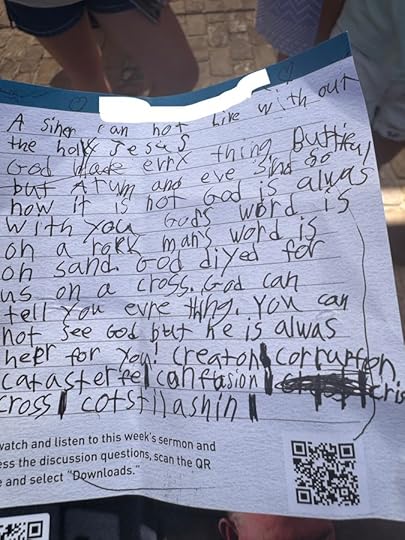 A siner can not live with out
the holy Jesus
God made evrx thing Buttieful
but Atum and eve sind so
now it is not God is alwas
with you Gods word is
on a rokk mans word is
on sand. God diyed for
us on a cross. God can
tell you evre thing. You can
not see God but he is alwas
heer for you! Creaton corruption,
catasterfe confusion cris
cross cotstmashin
watch and listen to this week's sermon and
ess the discussion questions, scan the QR
e and select "Downloads."